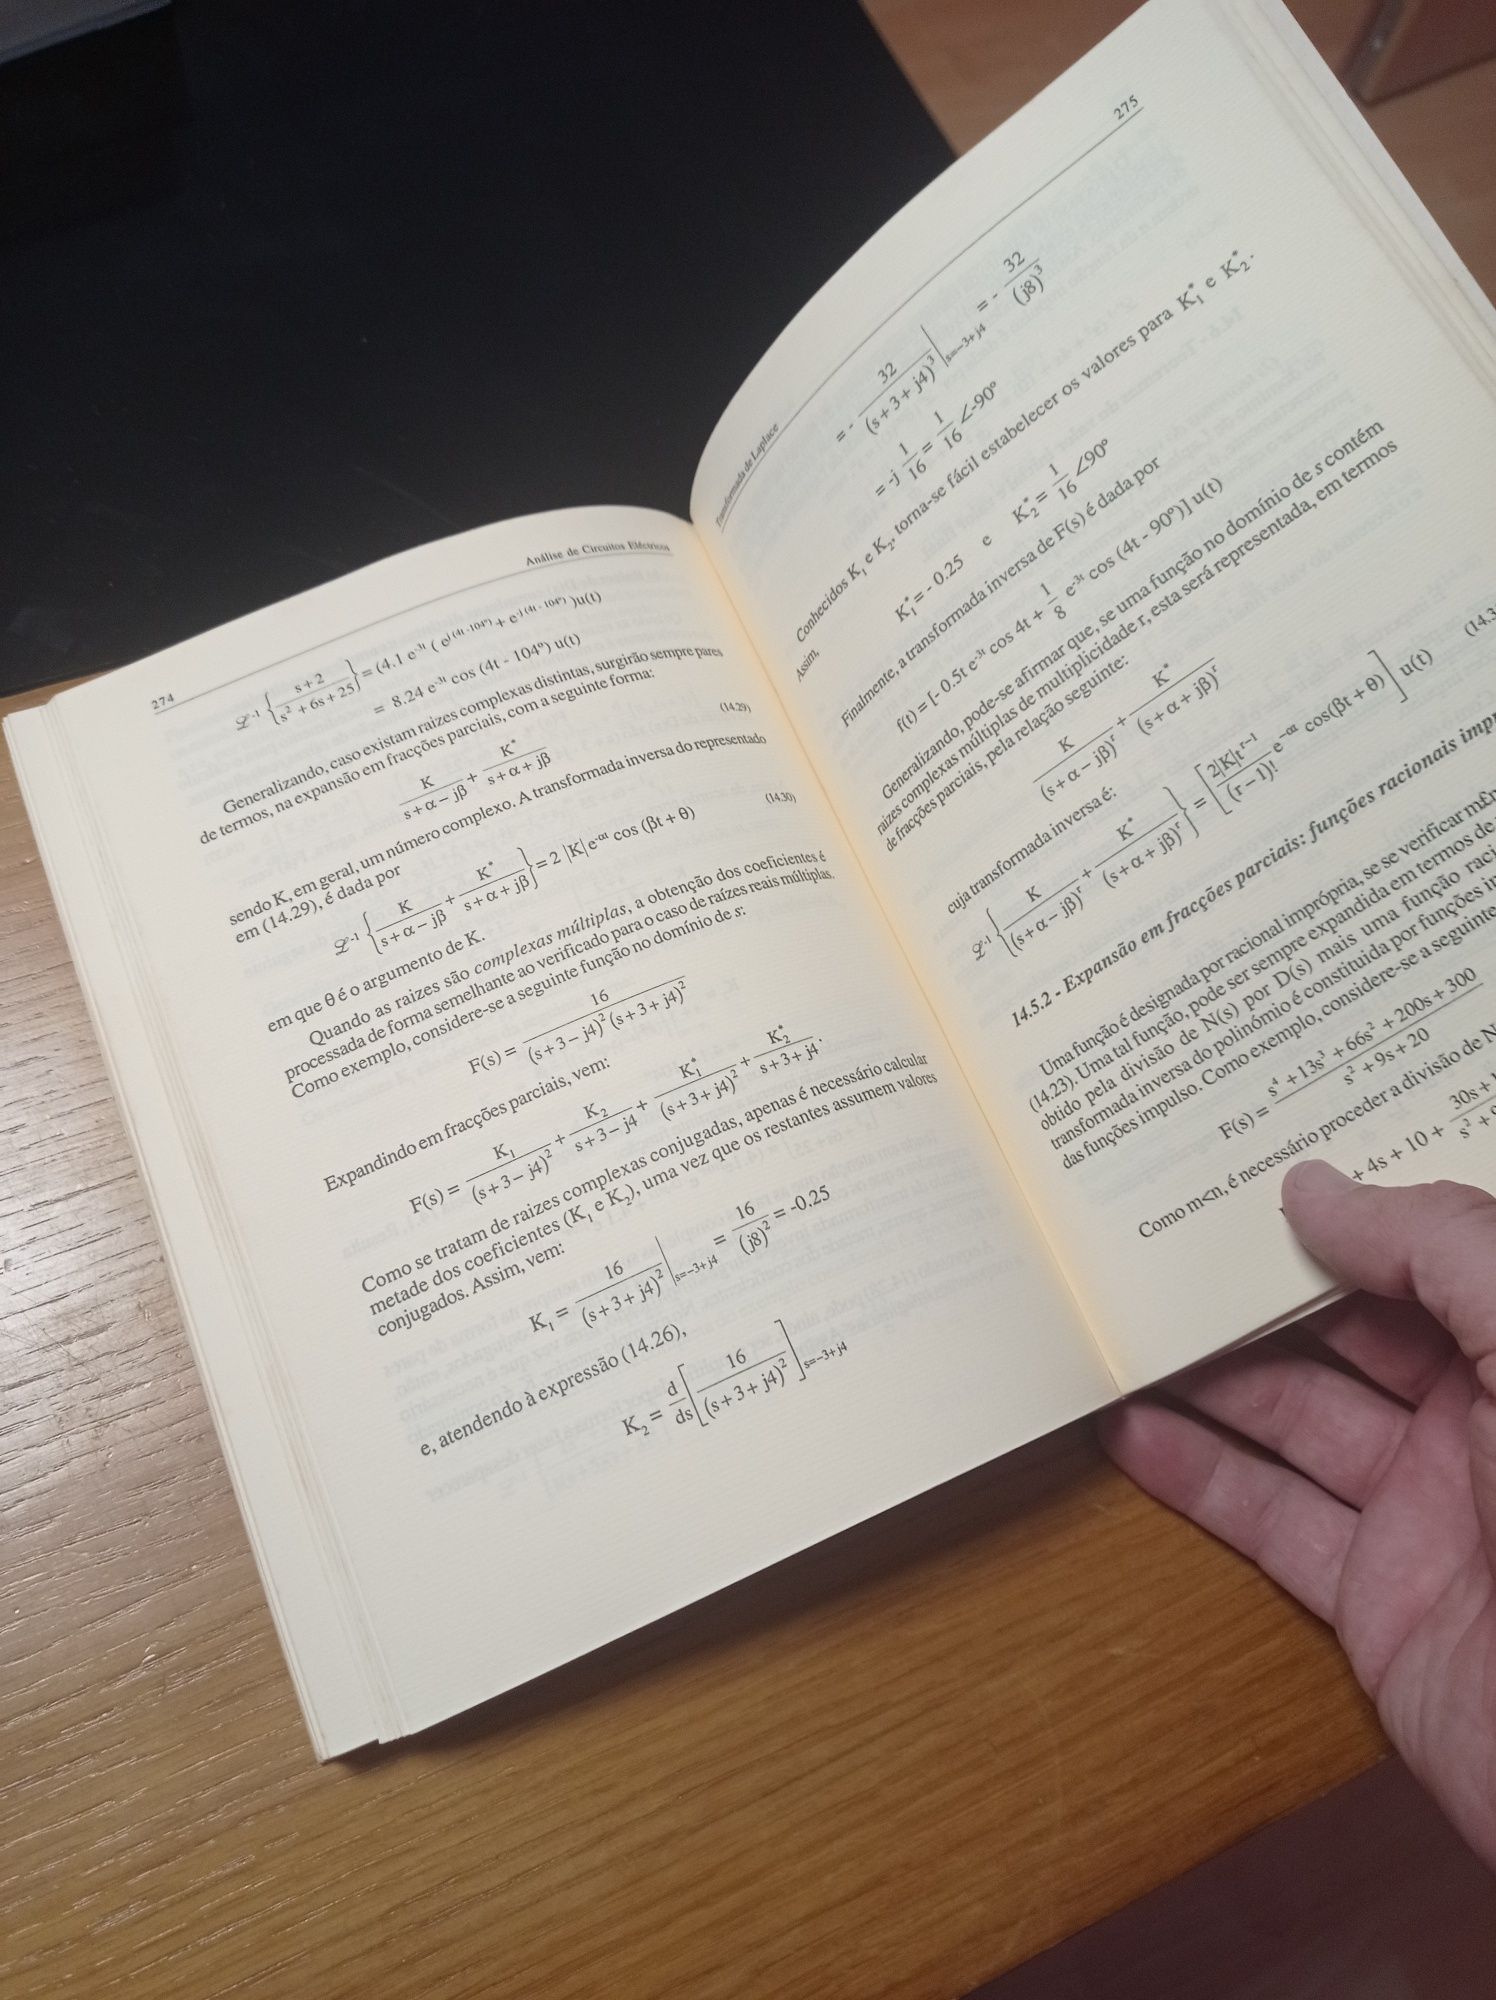 274
Análise de Circuitos Eléctricos
ℒ⁻¹ { (s + 2)/(s² + 6s + 25) } = (4.1 e⁻³ᵗ ( e^(j(4t - 104º)) + e^(-j(4t - 104º)) )u(t)
= 8.24 e⁻³ᵗ cos (4t - 104º) u(t)
Generalizando, caso existam raizes complexas distintas, surgirão sempre pares
de termos, na expansão em fracções parciais, com a seguinte forma:
K/(s + α − jβ) + K*/(s + α + jβ) (14.29)
sendo K, em geral, um número complexo. A transformada inversa do representado
em (14.29), é dada por
ℒ⁻¹ { K/(s + α − jβ) + K*/(s + α + jβ) } = 2 |K| e^(-αt) cos (βt + θ) (14.30)
em que θ é o argumento de K.
Quando as raizes são complexas múltiplas, a obtenção dos coeficientes é
processada de forma semelhante ao verificado para o caso de raízes reais múltiplas.
Como exemplo, considere-se a seguinte função no domínio de s:
F(s) = 16/((s + 3 − j4)² (s + 3 + j4)²)
Expandindo em fracções parciais, vem:
F(s) = K₁/(s + 3 − j4)² + K₂/(s + 3 − j4) + K₁*/(s + 3 + j4)² + K₂*/(s + 3 + j4).
Como se tratam de raizes complexas conjugadas, apenas é necessário calcular
metade dos coeficientes (K₁ e K₂), uma vez que os restantes assumem valores
conjugados. Assim, vem:
K₁ = 16/(s + 3 + j4)² |s=−3+j4 = 16/(j8)² = -0.25
e, atendendo à expressão (14.26),
K₂ = d/ds [ 16/(s + 3 + j4)² ]s=−3+j4
Transformada de Laplace
275
= - 32/(s + 3 + j4)³ |s=−3+j4 = - 32/(j8)³
= -j 1/16 = 1/16 ∠-90º
Conhecidos K₁ e K₂, torna-se fácil estabelecer os valores para K₁* e K₂*.
Assim,
K₁* = - 0.25 e K₂* = 1/16 ∠90º
Finalmente, a transformada inversa de F(s) é dada por
f(t) = [- 0.5t e⁻³ᵗ cos 4t + 1/8 e⁻³ᵗ cos (4t - 90º)] u(t)
Generalizando, pode-se afirmar que, se uma função no domínio de s contém
raizes complexas múltiplas de multiplicidade r, esta será representada, em termos
de fracções parciais, pela relação seguinte:
K/(s + α − jβ)ʳ + K*/(s + α + jβ)ʳ
cuja transformada inversa é:
ℒ⁻¹ { K/(s + α − jβ)ʳ + K*/(s + α + jβ)ʳ } = [ 2|K|tʳ⁻¹/(r − 1)! e^(−αt) cos(βt + θ) ] u(t) (14.3
14.5.2 - Expansão em fracções parciais: funções racionais impr
Uma função é designada por racional imprópria, se se verificar m£n
(14.23). Uma tal função, pode ser sempre expandida em termos de
obtido pela divisão de N(s) por D(s) mais uma função raci
transformada inversa do polinómio é constituida por funções i
das funções impulso. Como exemplo, considere-se a seguinte
F(s) = (s⁴ + 13s³ + 66s² + 200s + 300)/(s² + 9s + 20)
Como m<n, é necessário proceder a divisão de N
+ 4s + 10 + (30s + 1)/(s² + 9